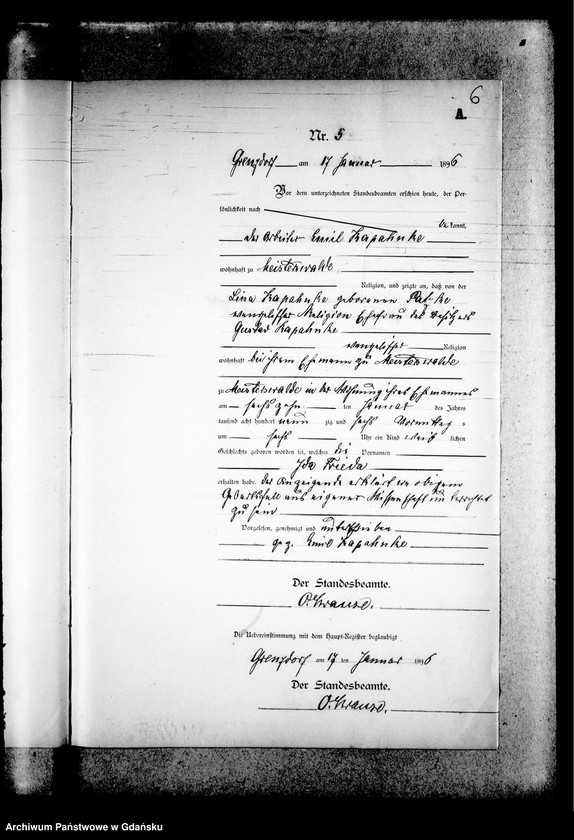 6
A.
Nr. 5
Grenzdorf am 17 Januar 1896
Vor dem unterzeichneten Standesbeamten erschien heute, der Per-
sönlichkeit nach
be kannt,
der Arbeiter Emil Kapahnke
wohnhaft zu Meisterswalde
Religion, und zeigte an, daß von der
Lina Kapahnke geborenen
evangelischer Religion Ehefrau des Besitzers
Gustav Kapahnke
evangelischer Religion
wohnhaft bei ihrem Ehemann zu Meisterswalde
zu Meisterswalde in der Wohnung ihres Ehemannes
am sechszehn ten Januar des Jahres
tausend acht hundert neun zig und sechs Vormittag s
um sechs Uhr ein Kind weib lichen
Geschlechts geboren worden sei, welches die Vornamen
Ida Frieda
erhalten habe. Der Anzeigende erklärt von obigem
Geburtsfall aus eigener Wissenschaft unterrichtet
zu sein
Vorgelesen, genehmigt und unterschrieben
gez. Emil Kapahnke
Der Standesbeamte.
O. Krause.
Die Uebereinstimmung mit dem Haupt-Register beglaubigt
Grenzdorf am 17 ten Januar 1896
Der Standesbeamte.
O. Krause.
Archiwum Państwowe w Gdańsku